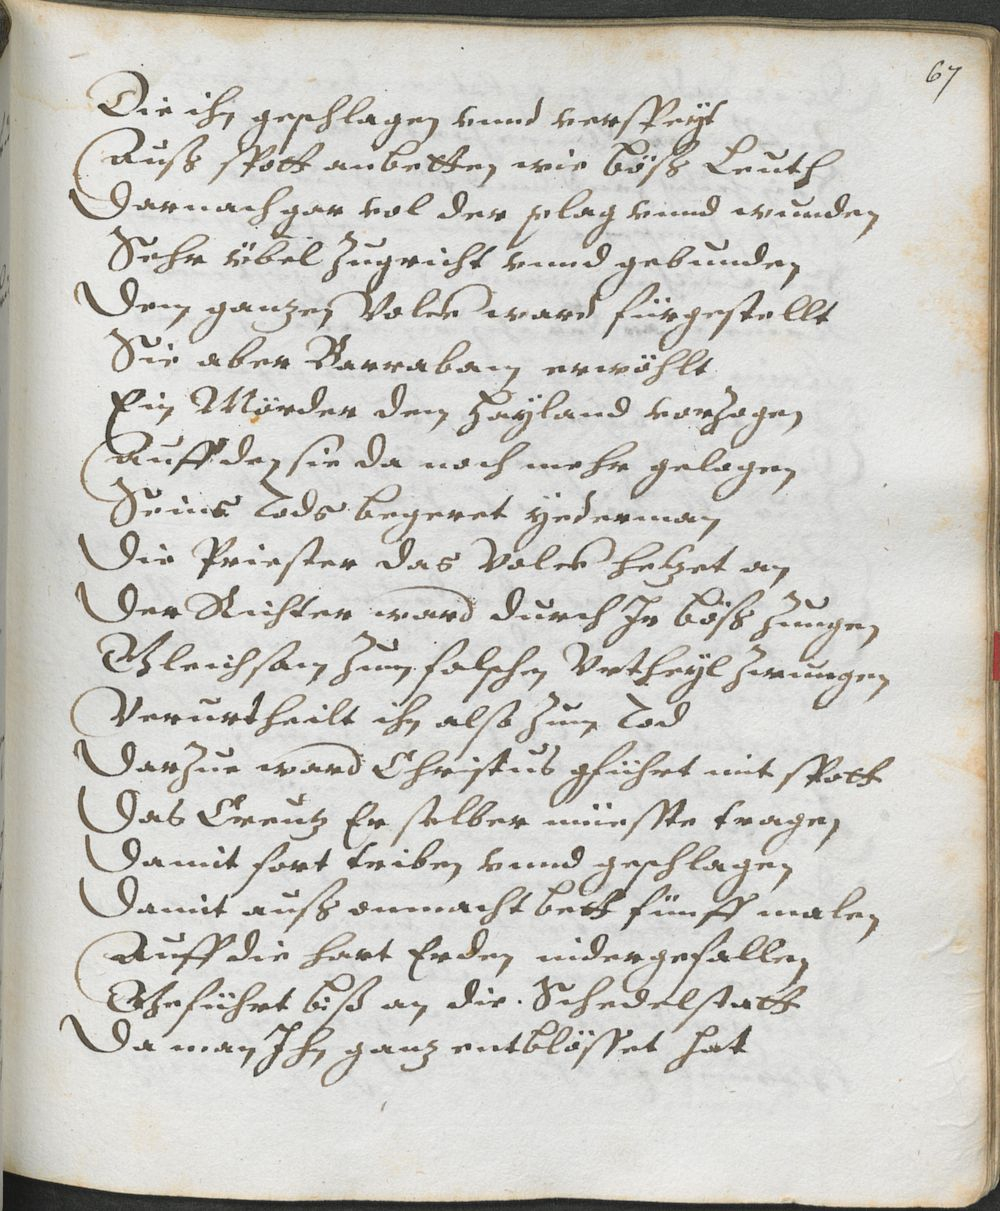 67
Die ihn geschlagen vnnd verspeyt
Auß spott anbetten wie böß Leuth
Darnach gar vol der plag vnnd wunden
Sehr übel zugricht vnnd gebunden
Dem ganzen Volck ward fürgestellt
Sie aber Barrabam erwöhlt
Ein Mörder dem Hayland vorzogen
Auff den sie da noch mehr gelogen
Seins Tods begeret yederman
Die Priester das Volck hetzet an
Der Richter ward durch Ir böß zungen
Gleichsam zum falschen Vrtheyl zwungen
Verurtheilt ihn also zum Tod
Darzue ward Christus gführt mit spott
Das Creutz Er selber müeste tragen
Damit fort triben vnnd geschlagen
Damit auß onmacht fünff malen
Auff die hart Erden nidergefallen
Geführt biß an die Schedelstatt
Da man Ihn ganz entblösset hat